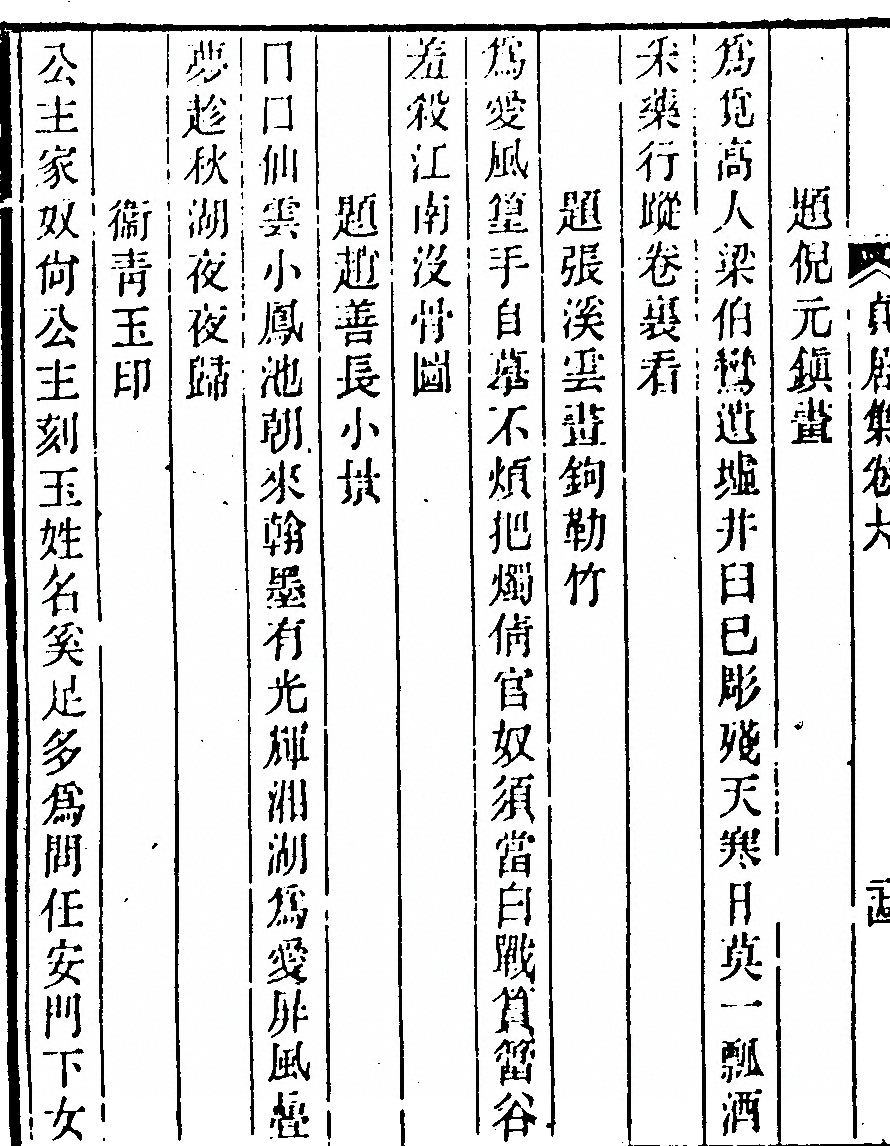 貞居集卷六
題倪元鎮畫
爲覓高人梁伯鸞遺墟井臼已彫殘天寒日莫一瓢酒
采藥行蹤卷裏看
題張溪雲畫鉤勒竹
爲愛風篁手自摹不煩把燭倩官奴須當白戰篔簹谷
羞殺江南沒骨圖
題趙善長小景
口口仙雲小鳳池朝來翰墨有光輝湘湖爲愛屏風疊
夢趁秋湖夜夜歸
衞青玉印
公主家奴尙公主刻玉姓名奚足多爲問任安門下女